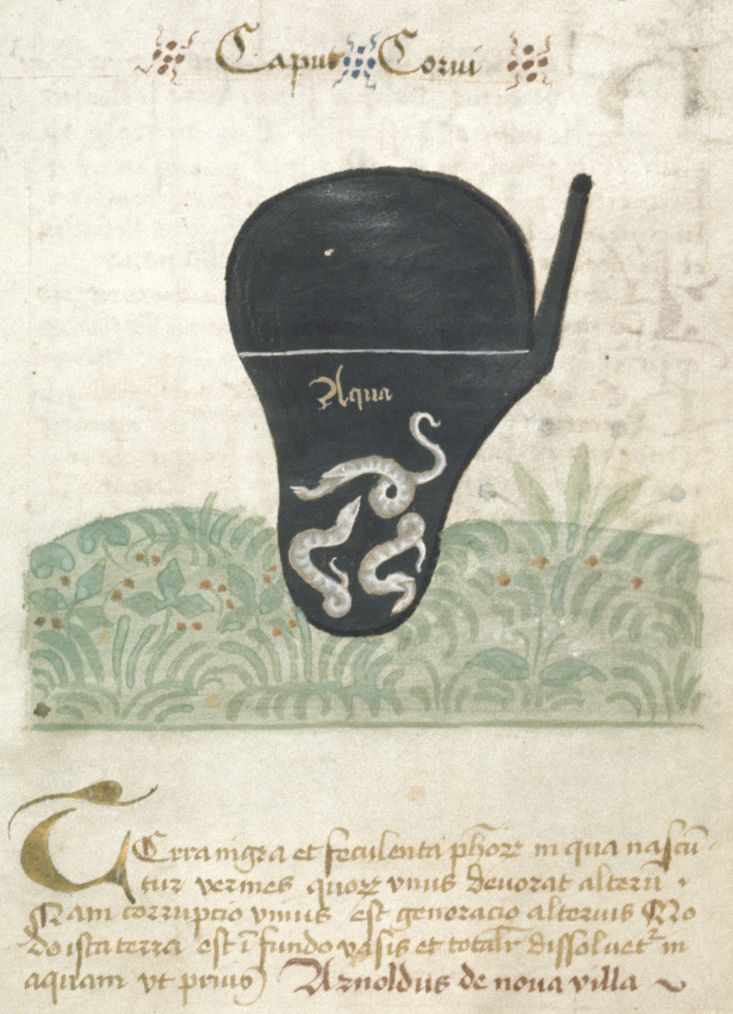 Caput Corui
Aqua
Terra nigra et feculenta ph̄orꝝ in qua nascū
tur vermes quorꝝ vnus deuorat alterū .
Nam corrupcio vnius est generacio alterius Mo
do ista terra est ī fundo vasis et totalr̄ dissoluet᷑ in
aquam vt prius Arnoldus de noua villa